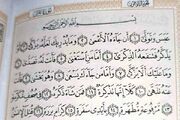 بِسْمِ اللَّهِ الرَّحْمَٰنِ الرَّحِيمِ
عَبَسَ وَتَوَلَّىٰ ١ أَن جَاءَهُ الْأَعْمَىٰ ٢ وَمَا يُدْرِيكَ لَعَلَّهُ يَزَّكَّىٰ ٣ أَوْ
يَذَّكَّرُ فَتَنفَعَهُ الذِّكْرَىٰ ٤ أَمَّا مَنِ اسْتَغْنَىٰ ٥ فَأَنتَ لَهُ تَصَدَّىٰ ٦
وَمَا عَلَيْكَ أَلَّا يَزَّكَّىٰ ٧ وَأَمَّا مَن جَاءَكَ يَسْعَىٰ ٨ وَهُوَ يَخْشَىٰ ٩
فَأَنتَ عَنْهُ تَلَهَّىٰ ١٠ كَلَّا إِنَّهَا تَذْكِرَةٌ ١١ فَمَن شَاءَ ذَكَرَهُ ١٢ فِي صُحُفٍ مُّكَرَّمَةٍ ١٣
مَّرْفُوعَةٍ مُّطَهَّرَةٍ ١٤ بِأَيْدِي سَفَرَةٍ ١٥